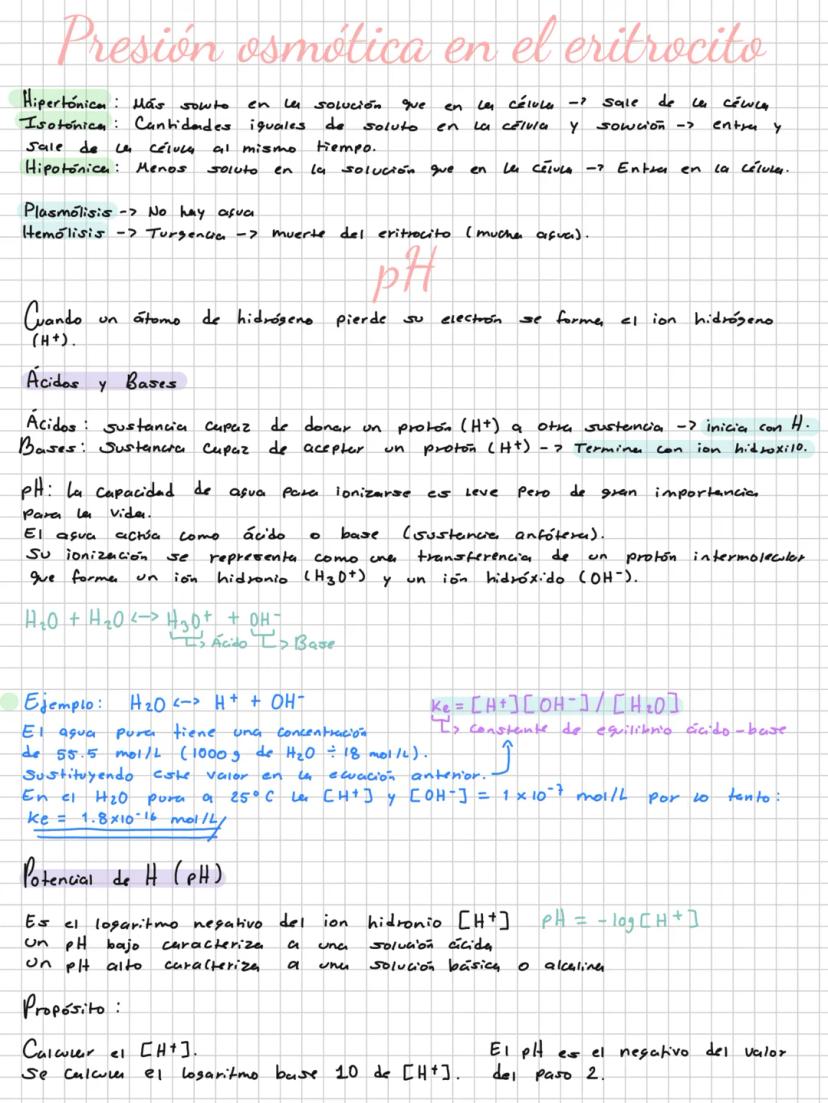 Presión osmótica en el eritrocito
Hipertónica: Más soluto en la solución que en la célula -> sale de la célula
Isotónica: Cantidades iguales de soluto en la célula y solución -> entra y
sale de la célula al mismo tiempo.
Hipotónica: Menos soluto en la solución que en la célula -> Entra en la célula.
Plasmólisis -> No hay agua
Hemólisis -> Turgencia -> muerte del eritrocito (mucha agua).
pH
Cuando un átomo de hidrógeno pierde su electrón se forma el ion hidrógeno
(H+).
Ácidos y Bases
Ácidos: sustancia capaz de donar un protón (H+) a otra sustancia -> inicia con H.
Bases: Sustancia capaz de aceptar un protón (H+) -> Termina con ion hidroxilo.
pH: la capacidad de agua para ionizarse es leve pero de gran importancia
para la vida.
El agua actúa como ácido o base (sustancia anfótera).
Su ionización se representa como una transferencia de un protón intermolecular
que forma un ión hidronio (H3O+) y un ión hidróxido (OH-).
H2O + H2O <-> H3O+ + OH-
-> Ácido -> Base
Ejemplo: H2O <-> H+ + OH-
Ke = [H+][OH-] / [H2O]
El agua pura tiene una concentración
-> constante de equilibrio ácido-base
de 55.5 mol/L (1000g de H2O ÷ 18 mol/L).
Sustituyendo este valor en la ecuación anterior.
En el H2O pura a 25°C la [H+] y [OH-] = 1 x 10-7 mol/L por lo tanto:
Ke = 1.8x10-16 mol/L
Potencial de H (pH)
Es el logaritmo negativo del ion hidronio [H+] pH = -log[H+]
Un pH bajo caracteriza a una solución ácida
Un pH alto caracteriza a una solución básica o alcalina
Propósito:
Calcular el [H+].
Se calcula el logaritmo base 10 de [H+].
El pH es el negativo del valor
del paso 2.